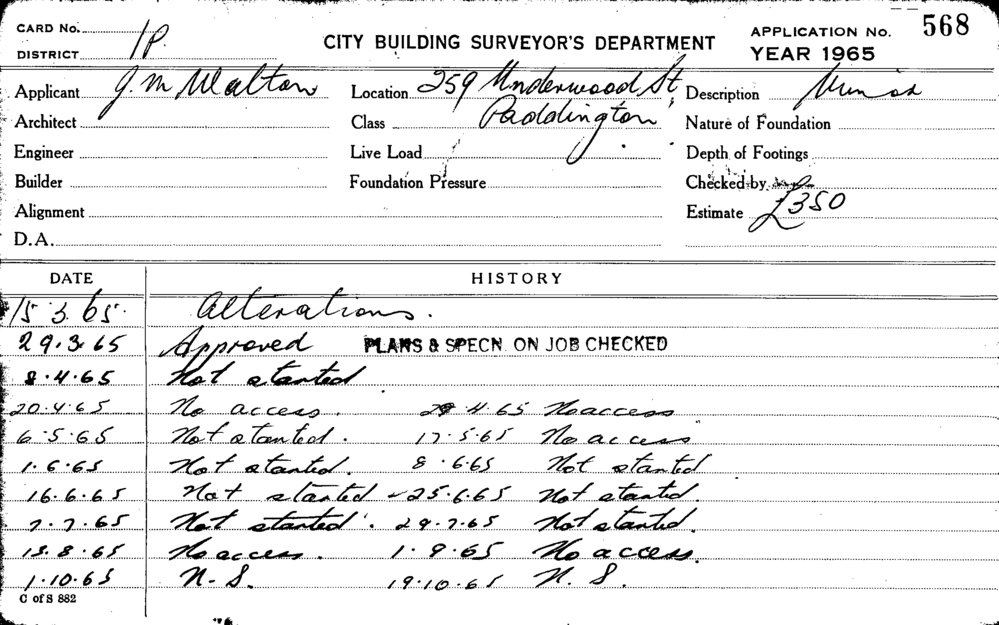 CARD No.
DISTRICT 1P.
CITY BUILDING SURVEYOR'S DEPARTMENT
APPLICATION No. 568
YEAR 1965
Applicant J. M Walton Location 259 Underwood St, Description
Architect Class Paddington Nature of Foundation
Engineer Live Load Depth of Footings
Builder Foundation Pressure Checked by
Alignment Estimate £350
D.A.
DATE HISTORY
15.3.65. Alterations.
29.3.65 Approved PLANS & SPECN. ON JOB CHECKED
8.4.65 Not started
20.4.65 No access. 29.4.65 No access
6.5.65 Not started. 17.5.65 No access
1.6.65 Not started. 8.6.65 Not started
16.6.65 Not started - 25.6.65 Not started.
7.7.65 Not started. 29.7.65 Not started.
13.8.65 No access. 1.9.65 No access.
1.10.65 N.S. 19.10.65 N.S.
C of S 882